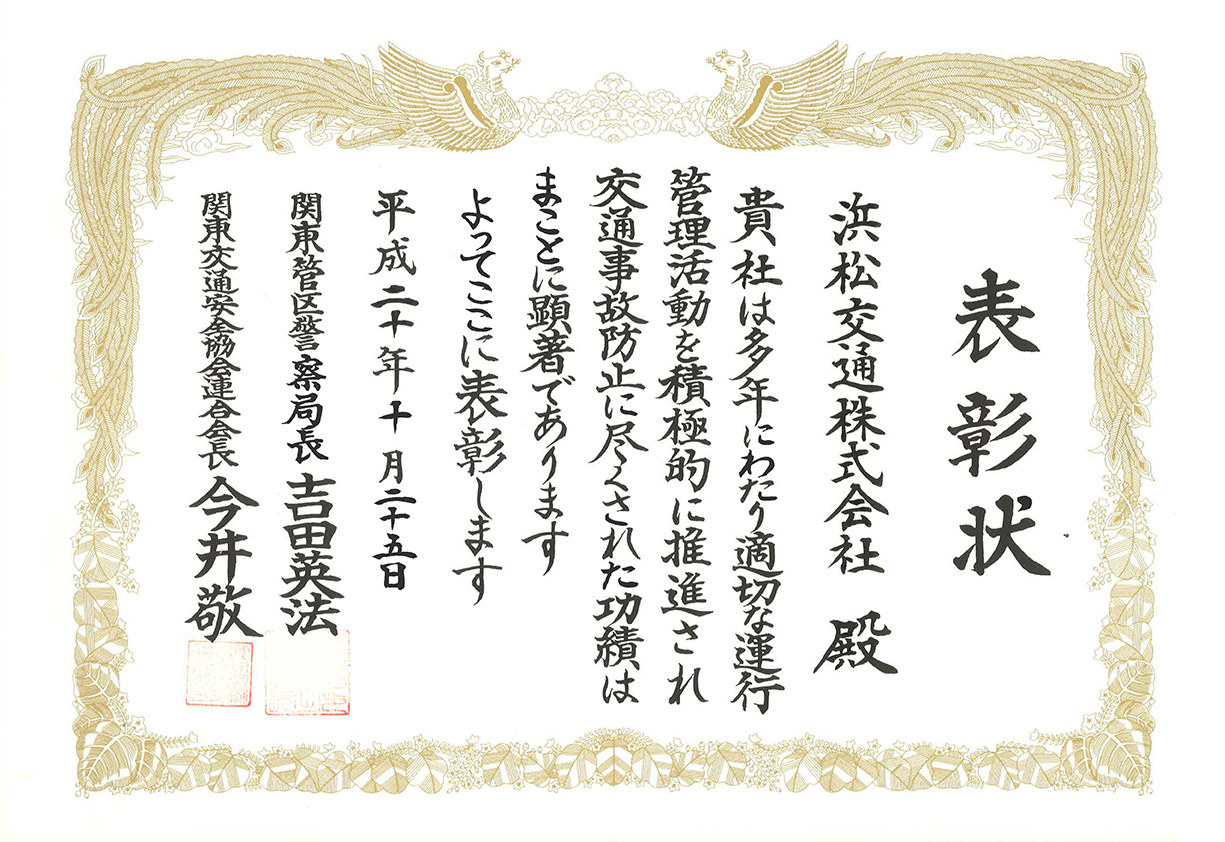 表彰状
浜松交通株式会社 殿
貴社は多年にわたり適切な運行
管理活動を積極的に推進され
交通事故防止に尽くされた功績は
まことに顕著であります
よってここに表彰します
平成二十年十月二十五日
関東管区警察局長 吉田英法
関東交通安全協会連合会長 今井敬